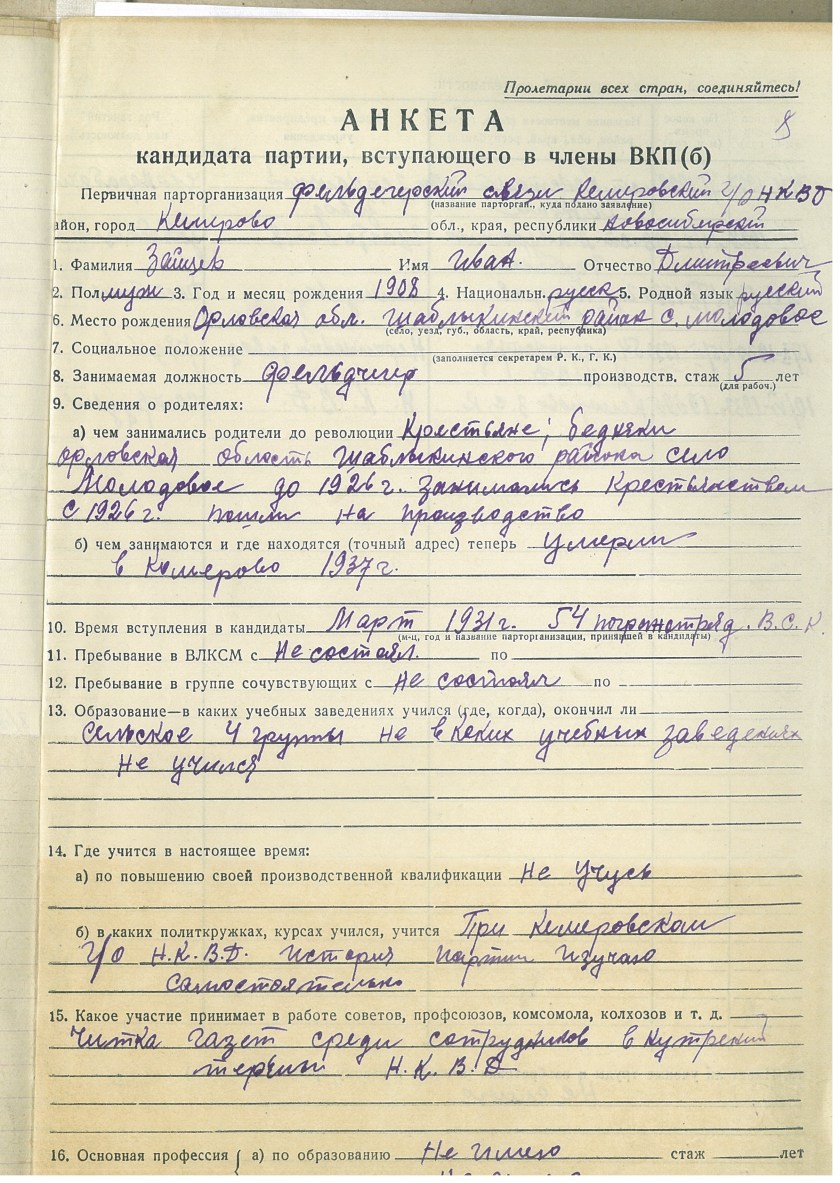 Пролетарии всех стран, соединяйтесь!
АНКЕТА
8
кандидата партии, вступающего в члены ВКП(б)
Первичная парторганизация фельдегерский связи Кемеровский г/о НКВД
(название парторган., куда подано заявление)
район, город Кемерово обл., края, республики Новосибирский
1. Фамилия Зайцев Имя Иван. Отчество Дмитреевич
2. Пол муж 3. Год и месяц рождения 1908 4. Национальн. русск 5. Родной язык русский
6. Место рождения Орловская обл. Шаблыкинский район с. Молодовое
(село, уезд, губ., область, край, республика)
7. Социальное положение
(заполняется секретарем Р. К., Г. К.)
8. Занимаемая должность производств. стаж 5 лет
(для рабоч.)
9. Сведения о родителях:
а) чем занимались родители до революции Крестьяне; бедняки
орловская область Шаблыкинского района село
Молодовое до 1926 г. занимались Крестьянством
С 1926 г. пошли на производство
б) чем занимаются и где находятся (точный адрес) теперь умерли
в Кемерово 1937 г.
10. Время вступления в кандидаты Март 1931 г. 54 погранотряд. В.С.К.
(м-ц, год и название парторганизации, принявшей в кандидаты)
11. Пребывание в ВЛКСМ с Не состоял. по
12. Пребывание в группе сочувствующих с не состоял по
13. Образование—в каких учебных заведениях учился (где, когда), окончил ли
Сельское 4 группы не в каких учебных заведениях
не учился
14. Где учится в настоящее время:
а) по повышению своей производственной квалификации не учусь
б) в каких политкружках, курсах учился, учится При Кемеровском
г/о Н.К.В.Д. история партии изучаю
самостоятельно
15. Какое участие принимает в работе советов, профсоюзов, комсомола, колхозов и т. д.
Читка газет среди сотрудников внутрений
тюрьмы Н.К.В.Д
16. Основная профессия { а) по образованию Не имею стаж лет